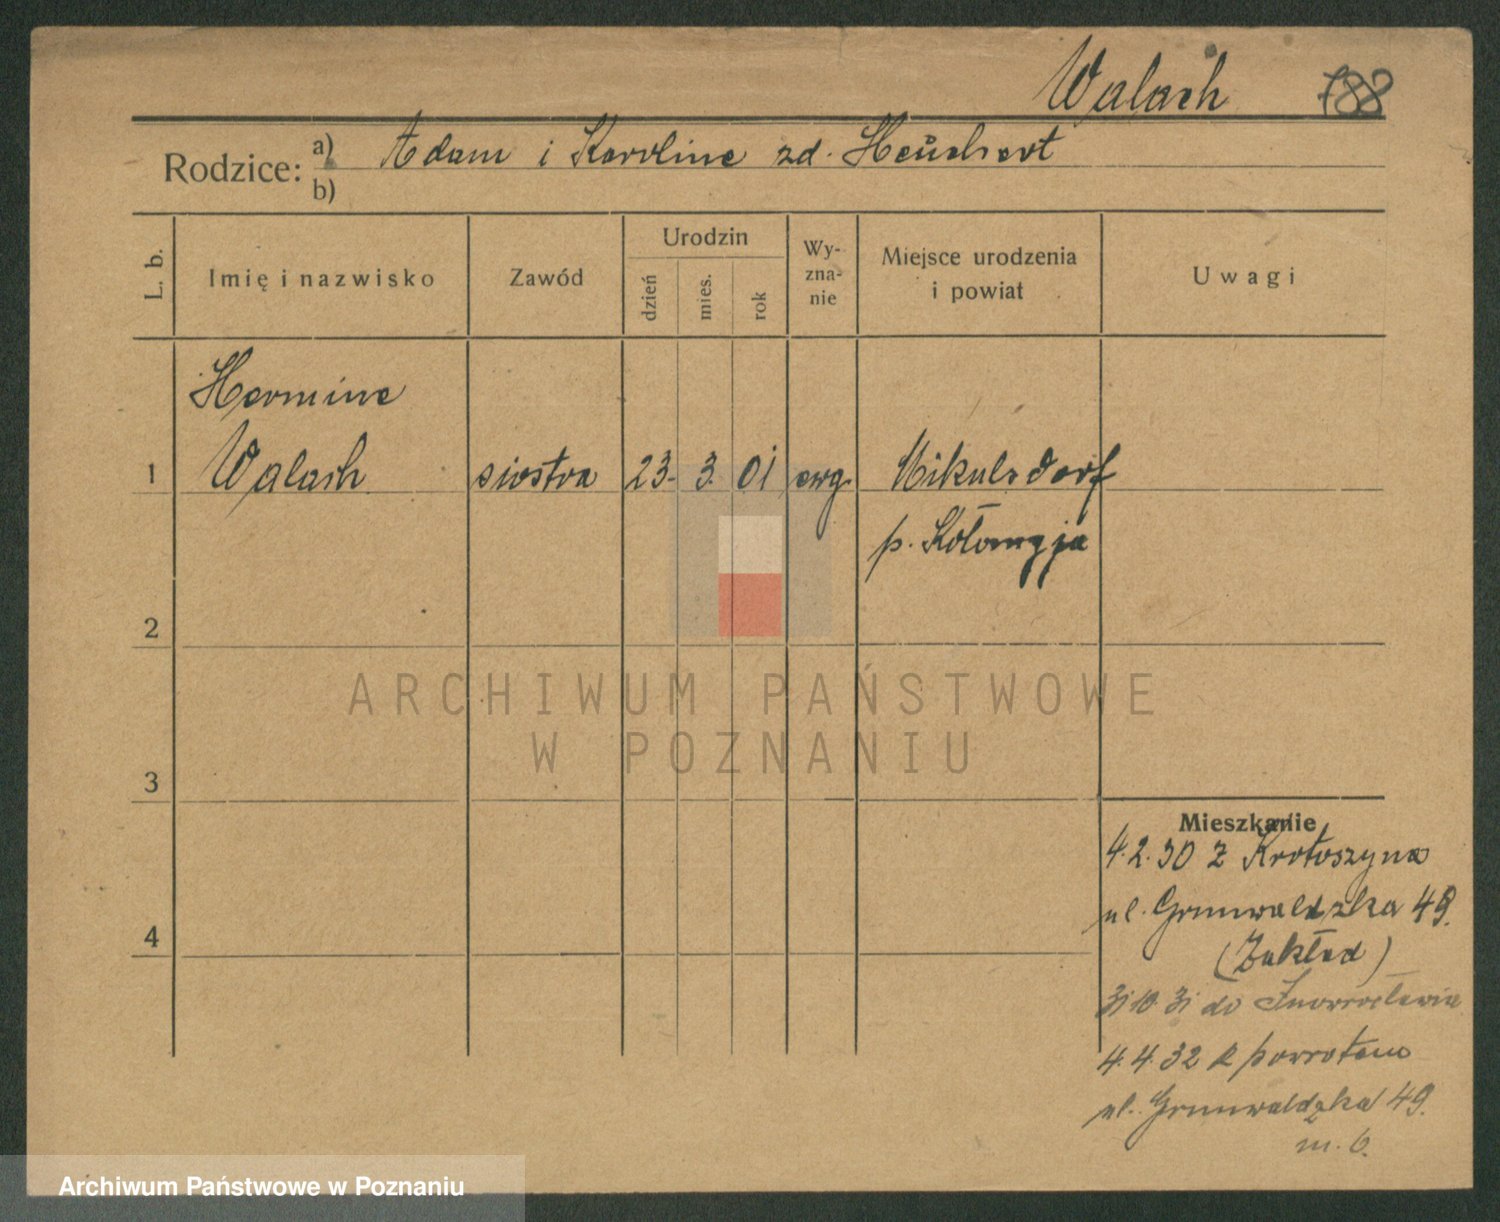 Walach 788
Rodzice: a) Adam i Karoline zd. Heuchert
b)
L. b.
Imię i nazwisko
Zawód
Urodzin
dzień
mies.
rok
Wy-
zna-
nie
Miejsce urodzenia
i powiat
Uwagi
Hermine
1 Walach siostra 23. 3. 01 ewg. Mikulsdorf
p. Kołomyja
2
3
4
Mieszkanie
4.2.30 z Krotoszyna
ul. Grunwaldzka 49.
(Zakład)
31 10 31 do Inowrocławia
4.4.32 z powrotem
ul. Grunwaldzka 49.
m. 6.
ARCHIWUM PAŃSTWOWE
W POZNANIU
Archiwum Państwowe w Poznaniu